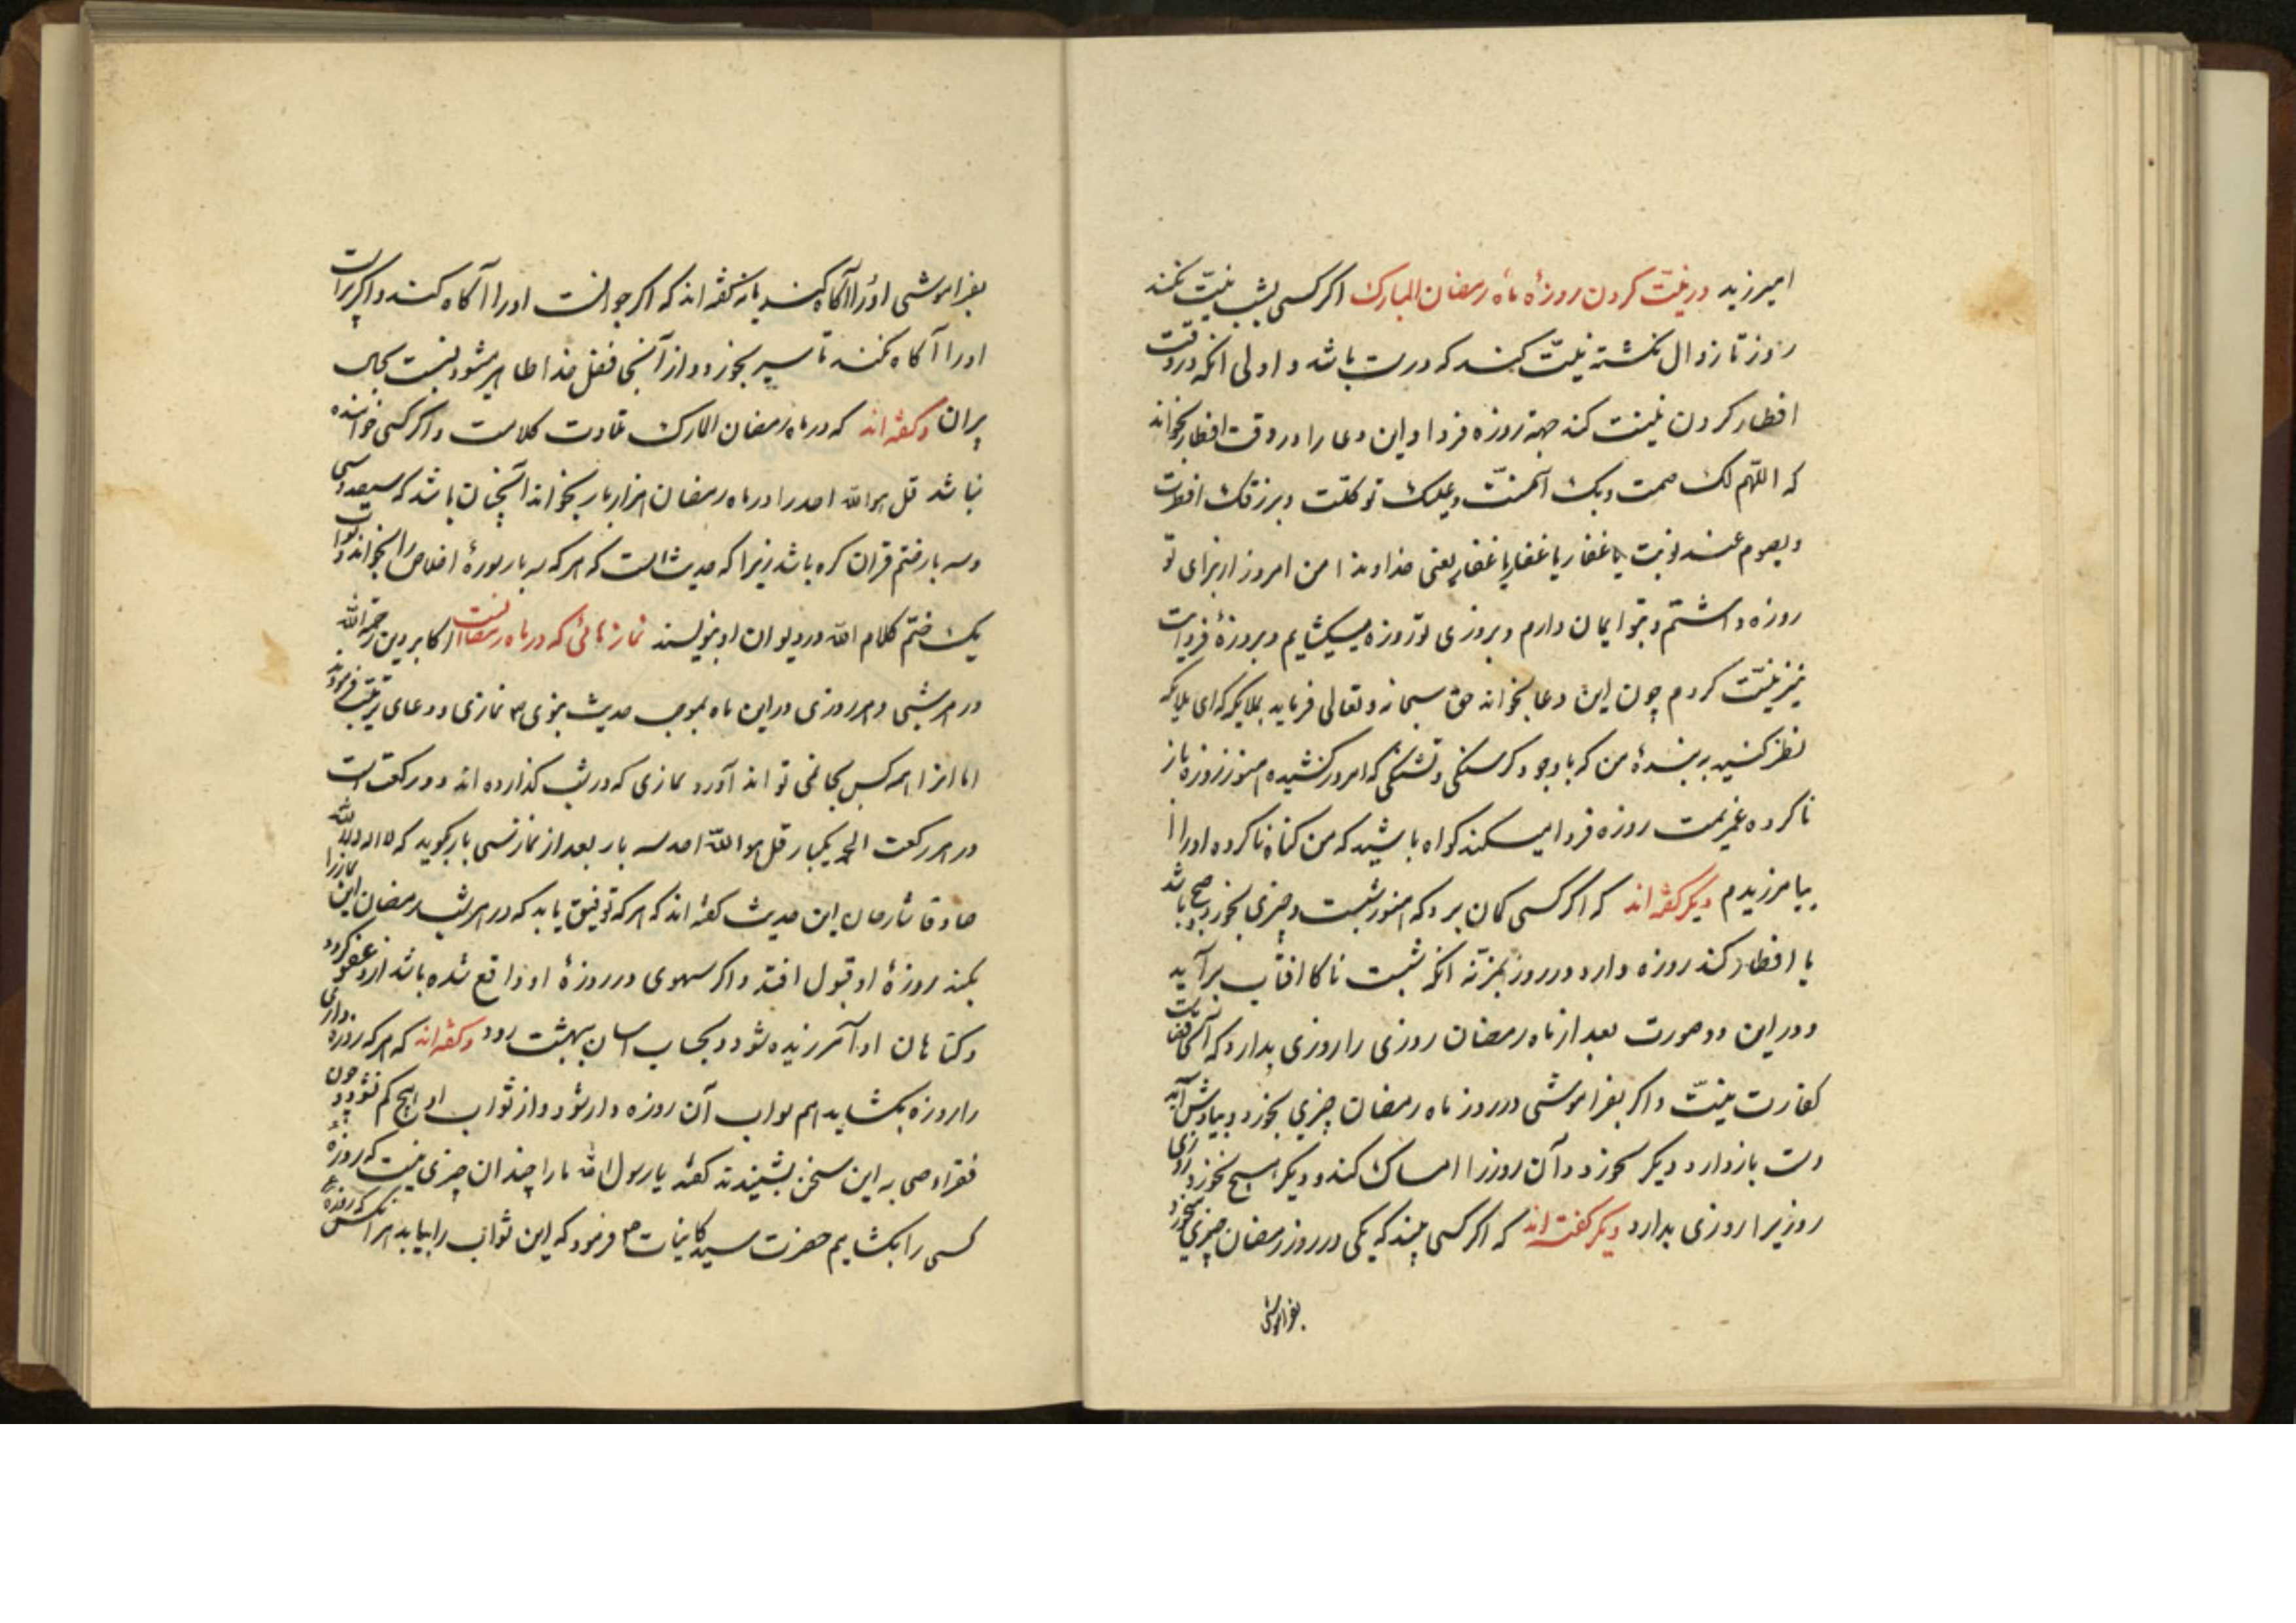 امیرزید در نیّت کردن روزهٔ ماه رمضان المبارک اکر کسی بشب نیّت نکند
روز تا زوال نکشته نیّت کند که درست باشد و اولی انکه در وقت
افطار کردن نیّت کند جهة روزه فردا و این دعا را در وقت افطار بخواند
که اللّهم لک صمت و بک آمنتّ و علیک توکلّت و برزقک افطرت
و بصوم غد نویت یا غفار یا غفار یا غفار یعنی خداوندا من امروز از برای تو
روزه داشتم و بتو ایمان دارم و بروزی تو روزه میکشایم و بروزهٔ فردات
نیز نیّت کردم چون این دعا بخواند حق سبحانه و تعالی فرماید بملایکه که ای ملایکه
نظر کنید بر بندهٔ من که با وجود کرسنکی و تشنکی که امروز کشیده هنوز روزه باز
ناکرده عزیمت روزه فردا میکند کواه باشید که من کناه ناکرده او را
بیامرزیدم دیکر کفته اند که اکر کسی کمان برد که هنوز شبست و چیزی بخورد و صبح باشد
یا افطار کند روزه دارد در روز انکه شبست ناکا افتاب برآید
و در این دو صورت بعد از ماه رمضان روزی را روزی بدارد که آنرا
کفارت نیّت و اکر بفراموشی در روز ماه رمضان چیزی بخورد و بیادش آید
دست باز دارد و دیکر نخورد و آن روز را امساک کند و دیکر هیچ نخورد
روزیرا روزی بدارد دیکر کفته اند که اکر کسی بیند که یکی در روز رمضان چیزی میخورد
بفراموشی
بفراموشی او را آکاه کند یا نه کفته اند که اکر جوانست او را آکاه کند و اکر پیر است
او را آکاه نکند تا سیر بخورد و از آنجا فضل خدا ظاهر میشود نسبت بحال
پیران و کفته اند که در ماه رمضان المبارک تلاوت کلامست و اکر کسی خواننده
نباشد قل هو الله احد را در ماه رمضان هزار بار بخواند آنچنان باشد که سیصد و سی
و سه بار ختم قران کرده باشد زیرا که حدیث است که هر که سه بار سورهٔ اخلاص را بخواند ثواب
یک ختم کلام الله در دیوان او بنویسند نمازهائی که در ماه رمضانست اکابر دین رحمهم الله
در هر شبی و هر روزی در این ماه بموجب حدیث نبوی ص نمازی و دعای ترتیب فرموده‌اند
اما انرا همه کس بجا نمی تواند آورد نمازی که در شب کذارده اند دو رکعت است
در هر رکعت الحمد یکبار قل هو الله احد سه بار بعد از نماز سی بار بکوید که لا اله الا الله
صادقا شارحان این حدیث کفته اند که هر که توفیق یابد که در هر شب رمضان این نماز را
بکند روزهٔ او قبول افتد و اکر سهوی در روزهٔ او واقع شده باشد از او عفو کردد
و کناهان او آمرزیده شود و بحساب اسان ببهشت رود و کفته اند که هر که روزه داری
را روزه بکشاید هم ثواب آن روزه دار شود و از ثواب او هیچ کم نشود و چون
فقراء صحابه این سخن بشنیدند کفتند یا رسول الله ما را چندان چیزی نیست که روزهٔ
کسی را بکشایم حضرت سید کاینات ص فرمود که این ثواب را بیابد هر آنکس که روزه